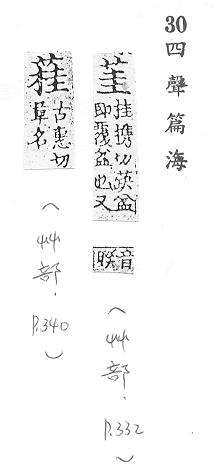 30 四聲篇海
茥
挂携切英盆
即盆也又
音
(艸部.P.332)
蓕
古惠切
草名
(艸部.P.340)